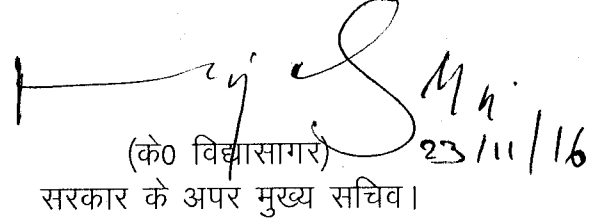 23/11/16
(के0 विद्यासागर)
सरकार के अपर मुख्य सचिव।